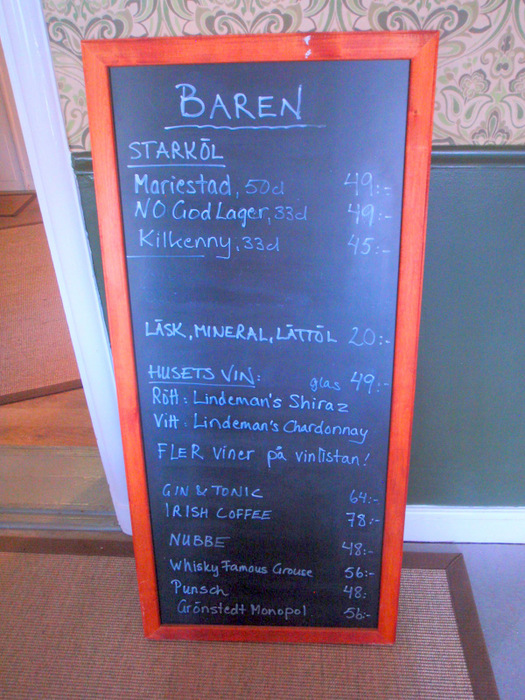 BAREN
STARKÖL
Mariestad, 50cl 49:-
NO God Lager, 33cl 49:-
Kilkenny, 33cl 45:-
LÄSK, MINERAL, LÄTTÖL 20:-
HUSETS VIN: glas 49:-
Rött: Lindeman's Shiraz
Vitt: Lindeman's Chardonnay
FLER viner på vinlistan!
GIN & TONIC 64:-
IRISH COFFEE 78:-
NUBBE 48:-
Whisky Famous Grouse 56:-
Punsch 48:
Grönstedt Monopol 56:-